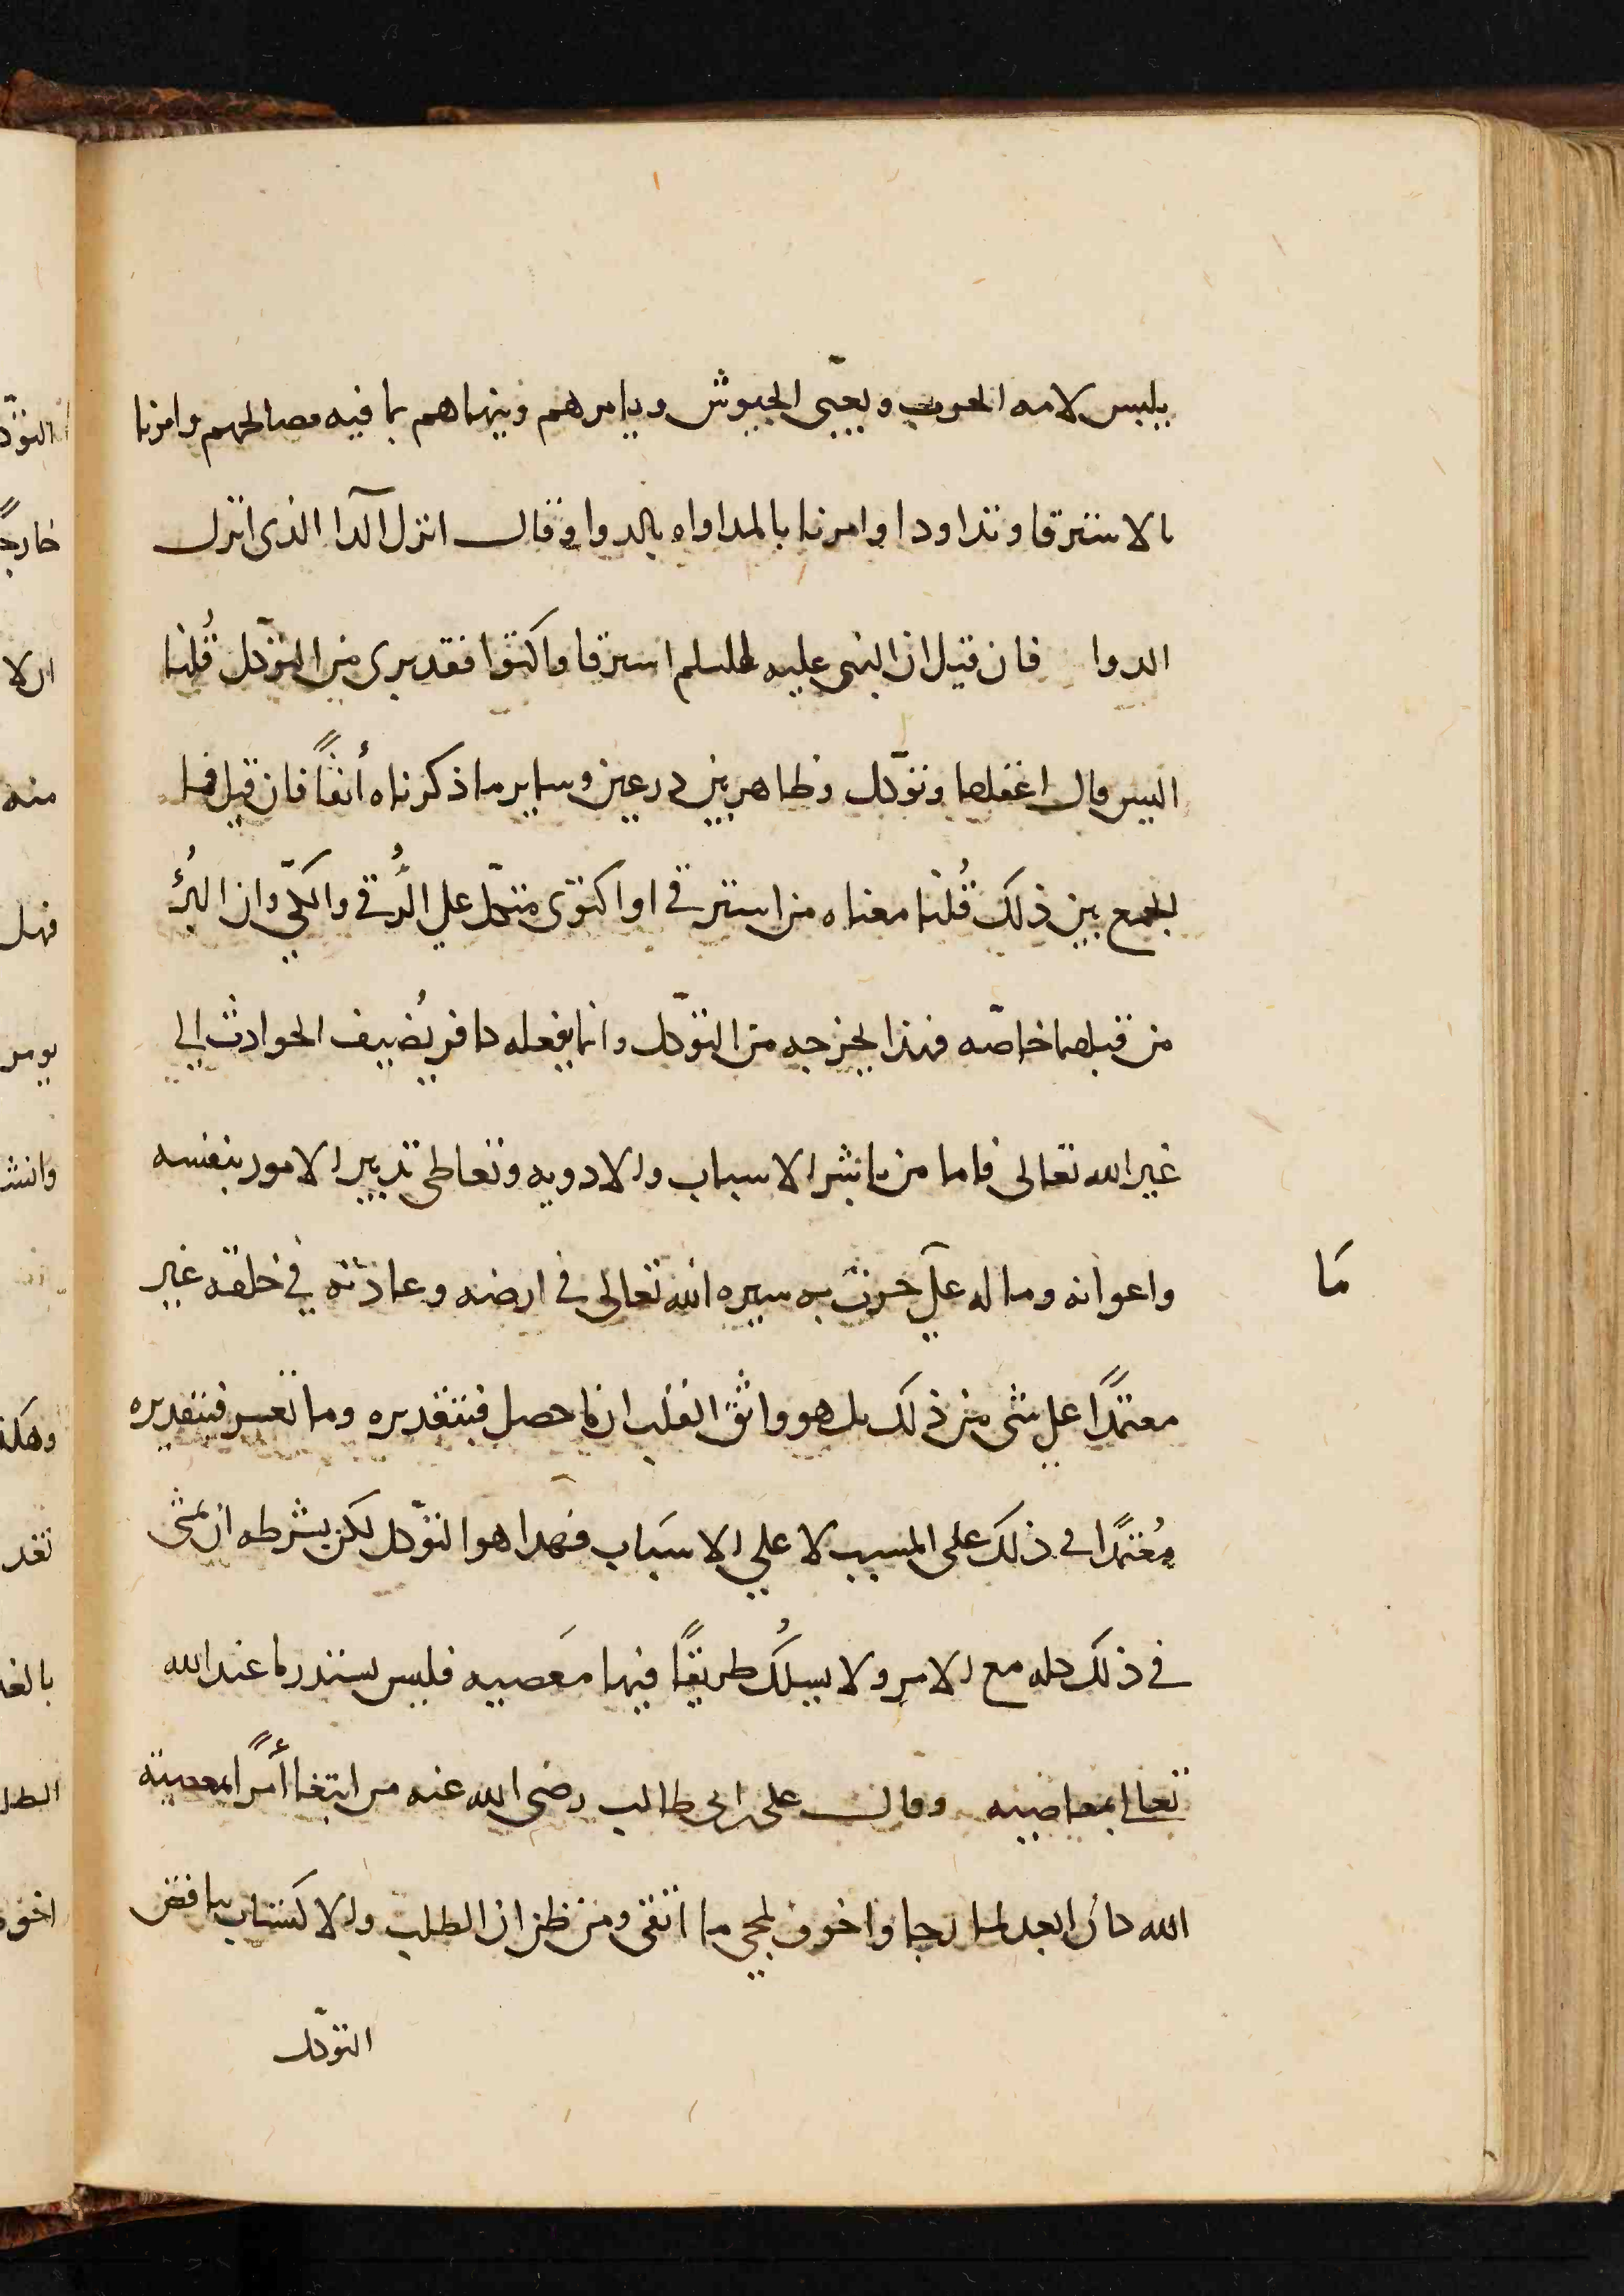 يلبس لامه الحرب ويعبّى الجيوش ويامرهم وينهاهم بما فيه مصالحهم وامرنا
بالاسترقا وتداودا وامرنا بالمداواه بالدوا وقال انزل الدآ الذى انزل
الدوا فان قيل ان النبى عليه السلم استرقا واكتوا فقد برى من التوكّل قُلنا
اليس قال اعقلها وتوكّل وظاهر بين درعين وساير ما ذكرناه أنفًا فان قيل فما
الجمع بين ذلك قُلنا معناه من استرقى او اكتوى متكّل على الرُّقى والكىّ وان البُرؤ
من قبلهما خاصّه فهذا يخرجه من التوكّل وانما يفعله كافر يُضيف الحوادث الى
غير الله تعالى فاما من باشر الاسباب والادويه وتعاطى تدبير الامور بنفسه
واعوانه وماله على جرت به سيره الله تعالى فى ارضه وعادته فى خلقه غير
مَا
معتمدًا على شى من ذلك بل هو واثق القلب ان ما حصل فبتقديره وما تعسر فبتقديره
مُعتمدًا فى ذلك على المسبب لا على الاسبَاب فهدا هو التوكّل لكن بشرطه ان يمشى
فى ذلك كله مع الامر ولا يسلُك طريقًا فيها مَعصيه فليس يستدر ما عند الله
تعالى بمعاصيه وقال على بن ابى طالب رضى الله عنه من ابتغا أمرًا بمعصية
الله كان ابعد لما رجا واخوف لمجى ما اتقى ومن ظن ان الطلب والاكتساب يناقض
التوكّل